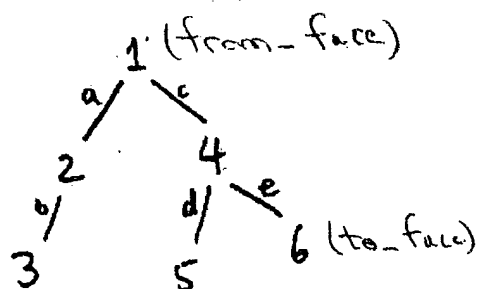 1 (from_face)
a c
2 4
b d e
3 5 6 (to_face)